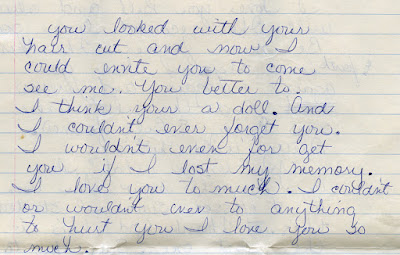 you looked with your
hair cut and now I
could envite you to come
see me. You better to.
I think your a doll. And
I couldn't ever forget you.
I wouldn't even for get
you if I lost my memory.
I love you to much. I couldn't
or wouldn't ever to anything
to hurt you I love you so
much.